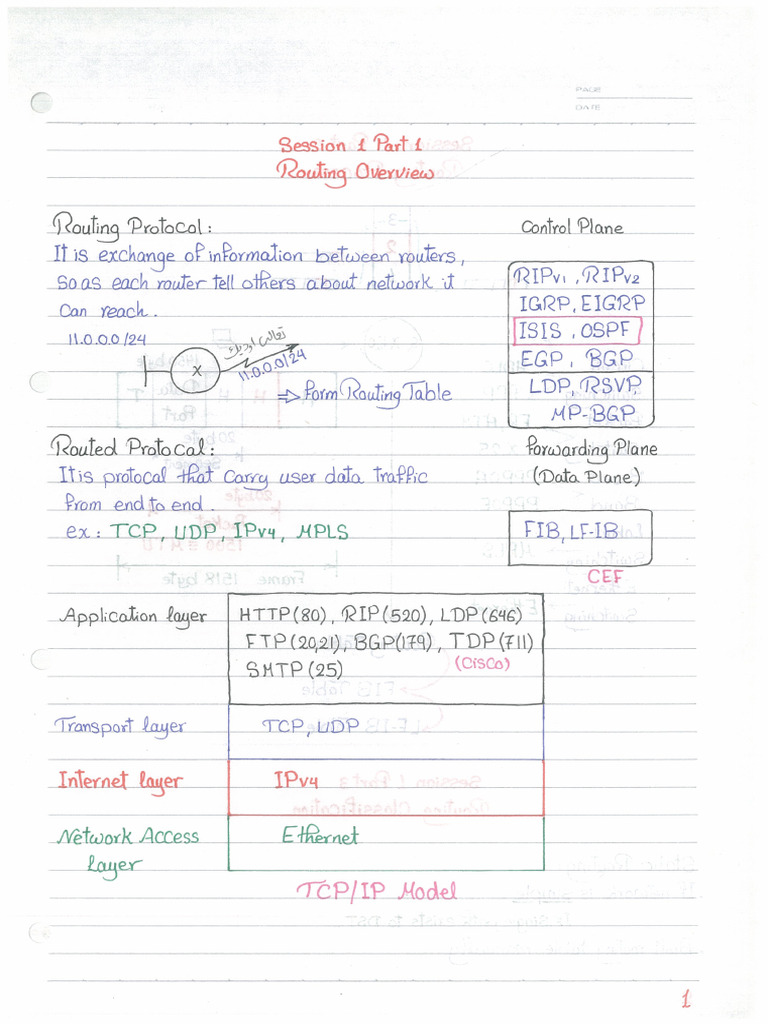 PAGE
DATE
Session 1 Part 1
Routing Overview
Routing Protocal:
It is exchange of information between routers,
so as each router tell others about network it
can reach.
11.0.0.0/24
X
11.0.0.0/24
⇒ form Routing Table
Control Plane
RIPv1, RIPv2
IGRP, EIGRP
ISIS, OSPF
EGP, BGP
LDP, RSVP
MP-BGP
Routed Protocal:
It is protocal that carry user data traffic
from end to end.
ex: TCP, UDP, IPv4, MPLS
Forwarding Plane
(Data Plane)
FIB, LF-IB
CEF
Application layer
HTTP(80), RIP(520), LDP(646)
FTP(20,21), BGP(179), TDP(711)
SMTP(25)
(Cisco)
Transport layer
TCP, UDP
Internet layer
IPv4
Network Access
layer
Ethernet
TCP/IP Model
1